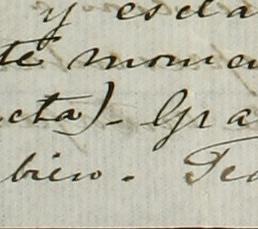 y esda
te momen
cta)- Gra
bien. Tea